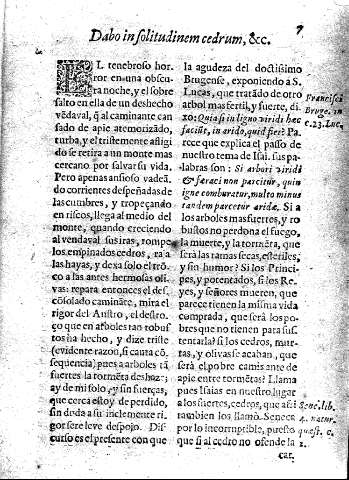 7
Dabo in solitudinem cedrum, &c.
EL tenebroso hor-
ror en vna obscu-
ra noche, y el sobre
salto en ella de vn deshecho
vẽdaval, q̃ al caminante can
sado de apie atemorizãdo,
turba, y el tristemente afligi
do se retira a vn monte mas
cercano por salvar su vida.
Pero apenas ansioso vadeã-
do corrientes despeñadas de
las cumbres, y tropeçando
en riscos, llega al medio del
monte, quando creciendo
al vendaval sus iras, rompe
los empinados cedros, raja
las hayas, y dexa solo el trõ-
co a las antes hermosas olivas:
repara entonces el des-
cõsolado caminãte, mira el
rigor del Austro, el destro-
ço que en arboles tan robus-
tos ha hecho, y dize triste
(evidente razon, si cauta cõ-
sequencia) pues a arboles tã
fuertes la tormẽta deshaze;
ay de mi solo, y sin fuerças,
que cerca estoy de perdido,
sin duda a su inclemente ri-
gor sere leve despojo. Dis-
curso es el presente con que
la agudeza del doctissimo
Brugense, exponiendo a S.
Lucas, que tratãdo de otro
arbol mas fertil, y fuerte, di-
zo: Quia si in ligno viridi hæc
faciũt, in arido, quid fiet? Pa-
rece que explica el passo de
nuestro tema de Isai. sus pa-
labras son: Si arbori viridi
& feraci non parcitur, quin
igne comburatur, multo minus
tandem parcetur aridæ. Si a
los arboles mas fuertes, y ro
bustos no perdona el fuego,
la muerte, y la tormẽta, que
serà las ramas secas, esteriles,
y sin humor? Si los Princi-
pes, y potentados, si los Re-
yes, y señores mueren, que
parece tienen la misma vida
comprada, que serà los po-
bres que no tienen para sus-
tentarla? si los cedros, mur-
tas, y olivas se acaban, que
serà el pobre caminante de
apie entre tormẽtas? Llama
pues Isaias en nuestro lugar
a los fuertes, cedros, que assi
tambien los llamò Seneca
por lo incorruptible, puesto
que si al cedro no ofende la
car-
Francisci
Bruge. in
c. 23. Luc.
Sene. lib.
4. natur.
quest. c.
2.